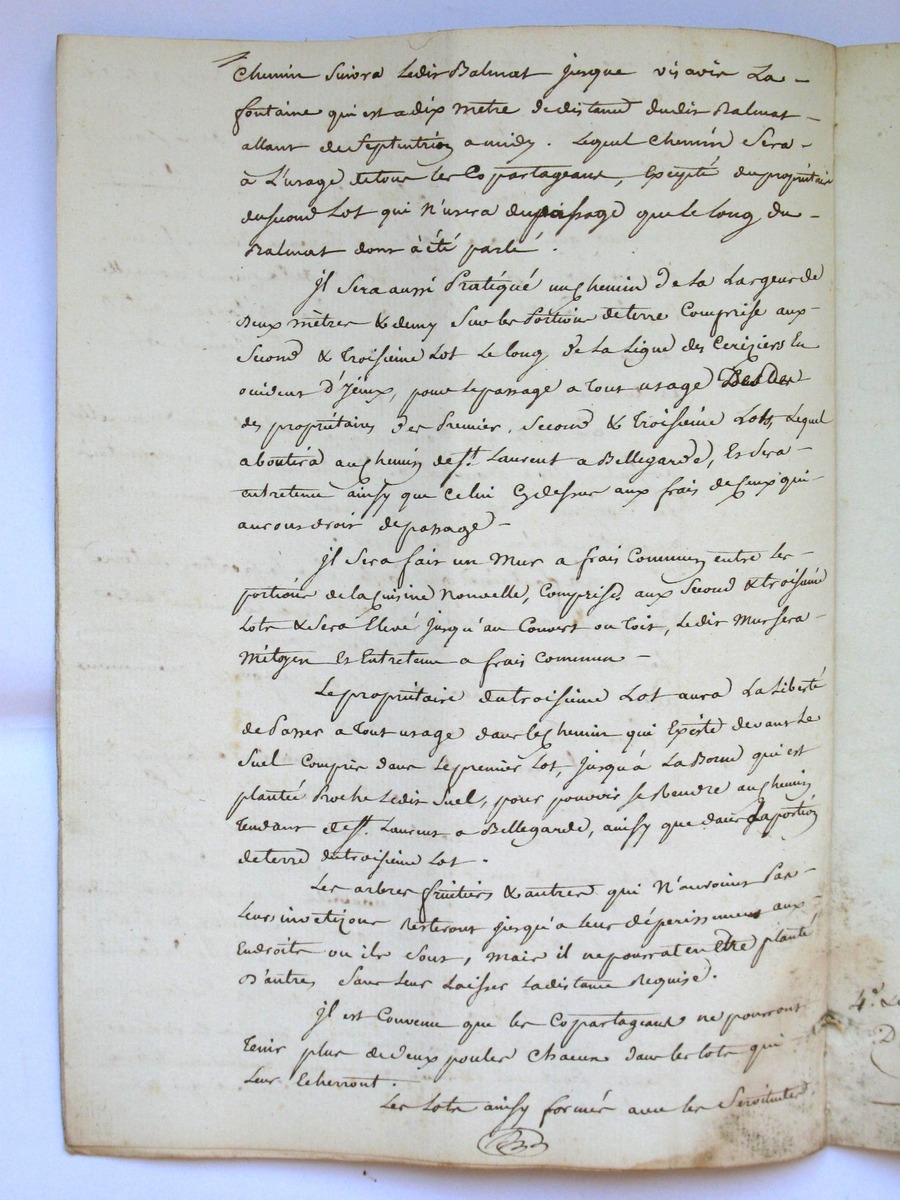 Chemin Suivra Ledit Balmat jusque vis avis La -
fontaine qui est a dix metre de distance dudit Balmat -
allant de Septentrion a midy. Lequel Chemin Sera -
à L'usage de tous les Copartageans, Excepté du propriétaire
du second Lot qui N'usera du passage que le long du -
Balmat dont à été parlé.
Jl Sera aussi Pratiqué un Chemin De La Largeur de
Deux mètres & demy Sur les Portions de terre Comprise aux -
Second & troisieme Lot Le long De La Ligne des Ceriziers En
occident D'Jeux, pour le passage a tout usage
des propriétaires Des Premier, Second & Troisieme Lots, Lequel
aboutira au Chemin de St. Laurent a Bellegarde, Et Sera -
entretenu ainsy que Celui Cydessus aux frais de Ceux qui -
auront droit de passage -
Jl Sera fait un Mur a frais Commun entre les -
portions de la Cuisine Nouvelle, Comprise aux Second & troisieme
Lots & Sera Elevé jusqu'au Couvert ou toit, Ledit Mur Sera -
Mitoyen Et Entretenu a frais Commun -
Le propriétaire du troisieme Lot aura La Liberté
de Passer a Tout usage dans le Chemin qui Existe devant Le
Suel Compris dans Le premier Lot, jusqu'à La Borne qui est
plantée Proche Ledit Suel, pour pouvoir se Rendre au Chemin
Tendant de St. Laurent a Bellegarde, ainsy que dans La portion
de terre du troisieme Lot.
Les arbres fruitiers & autres qui N'auroient Pas -
Leurs Resteront jusqu'a leur dépérissement aux -
Endroits ou ils Sont, mais il ne pourrat en Etre planté
D'autres Sans Leur Laisser La distance Requise.
Jl est Convenu que les Copartageans ne pourront
Tenir plus de deux poules Chacun dans les lots qui
Leur Echerront.
Les Lots ainsy formés avec les Servitudes
4.e